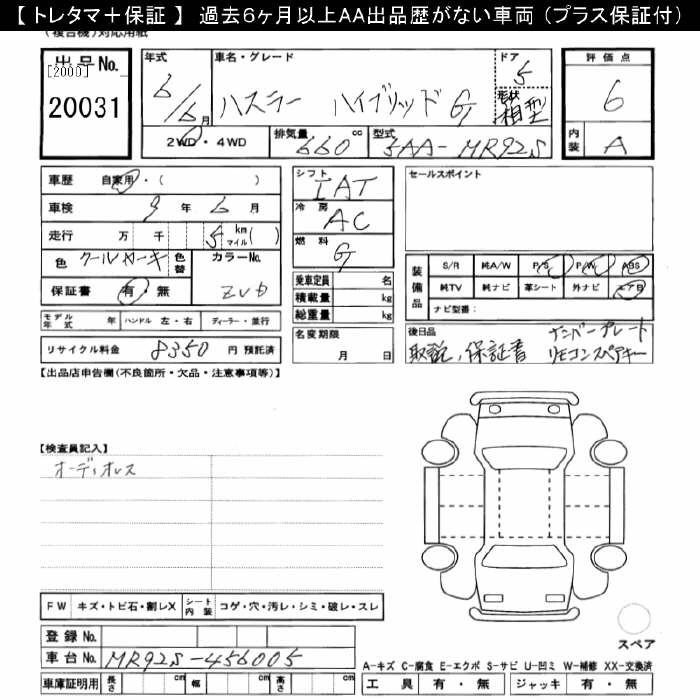 【 トレタマ＋保証 】 過去６ヶ月以上ＡＡ出品歴がない車両（プラス保証付）
(複合機)対応用紙
出品No. [2000]
20031
年式 6/6月
車名・グレード ハスラー ハイブリッド G
ドア 5
形状 箱型
評価点 6
内装 A
2WD・4WD 排気量 660 cc 型式 5AA-MR92S
車歴 自家用・( )
車検 9 年 6 月
走行 万 千 5 km マイル( )
色 クールカーキ 色替 カラーNo. ZVD
保証書 有・無
シフト IAT
冷房 AC
燃料 G
乗車定員 名
積載量 kg
総重量 kg
セールスポイント
装備品 S/R 純A/W P/S P/W ABS
純TV 純ナビ 革シート 外ナビ エアB
ナビ型番：
モデル年式 年 ハンドル 左・右 ディーラー・並行
リサイクル料金 8350 円 預託済
名変期限 月 日
後日品 ナンバープレート
取説、保証書 リモコンスペアキー
【出品店申告欄(不良箇所・欠品・注意事項等)】
【検査員記入】
オーディオレス
FW キズ・トビ石・割レX シート内装 コゲ・穴・汚レ・シミ・破レ・スレ
登録 No.
車台 No. MR92S-456005
車庫証明用 長さ cm 幅 cm 高さ cm
スペア
A-キズ C-腐食 E-エクボ S-サビ U-凹ミ W-補修 XX-交換済
工具 有・無 ジャッキ 有・無